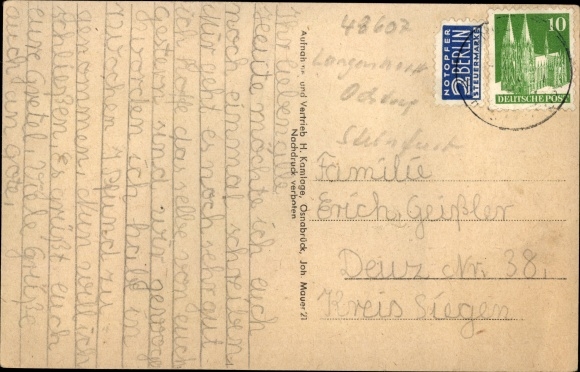 Ihr Lieben alle
Heute möchte ich euch
noch einmal schreiben,
Mir geht es noch sehr gut
hoffe dasselbe von euch
Gestern sind wir gewogt
worden, ich hatte
1 Pfund zu
genommen. Nun will ich
schließen. Es grüßt euch
eure Gretel viele Grüße
auch an
Aufnahme und Vertrieb H. Kamlage, Osnabrück, Joh. Mauer 21
Nachdruck verboten
48607
Ochtrup
Steinfurt
NOTOPFER
2 BERLIN
STEUERMARKE
10
DEUTSCHE POST
Familie
Erich Geißler
Deuz Nr. 38.
Kreis Siegen